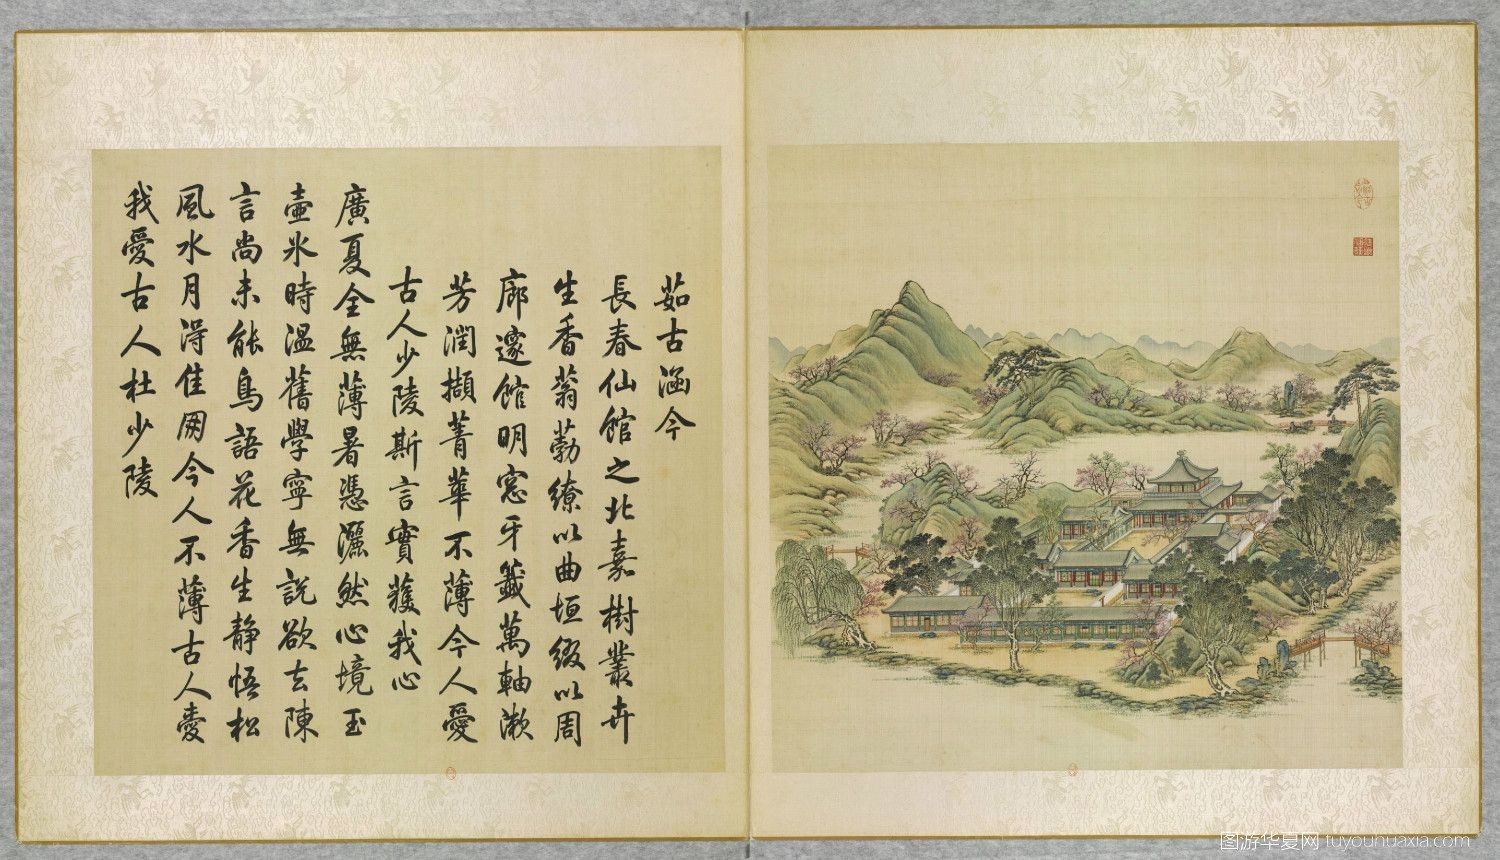 茹古涵今
長春仙館之北嘉樹叢卉
生香蓊葧繚以曲垣綴以周
廊邃館明窻牙籤萬軸漱
芳潤擷菁華不薄今人愛
古人少陵斯言實獲我心
廣夏全無薄暑憑灑然心境玉
壺氷時溫舊學寧無說欲去陳
言尚未能鳥語花香生靜悟松
風水月淂佳朋今人不薄古人愛
我愛古人杜少陵
图游华夏网 tuyouhuaxia.com